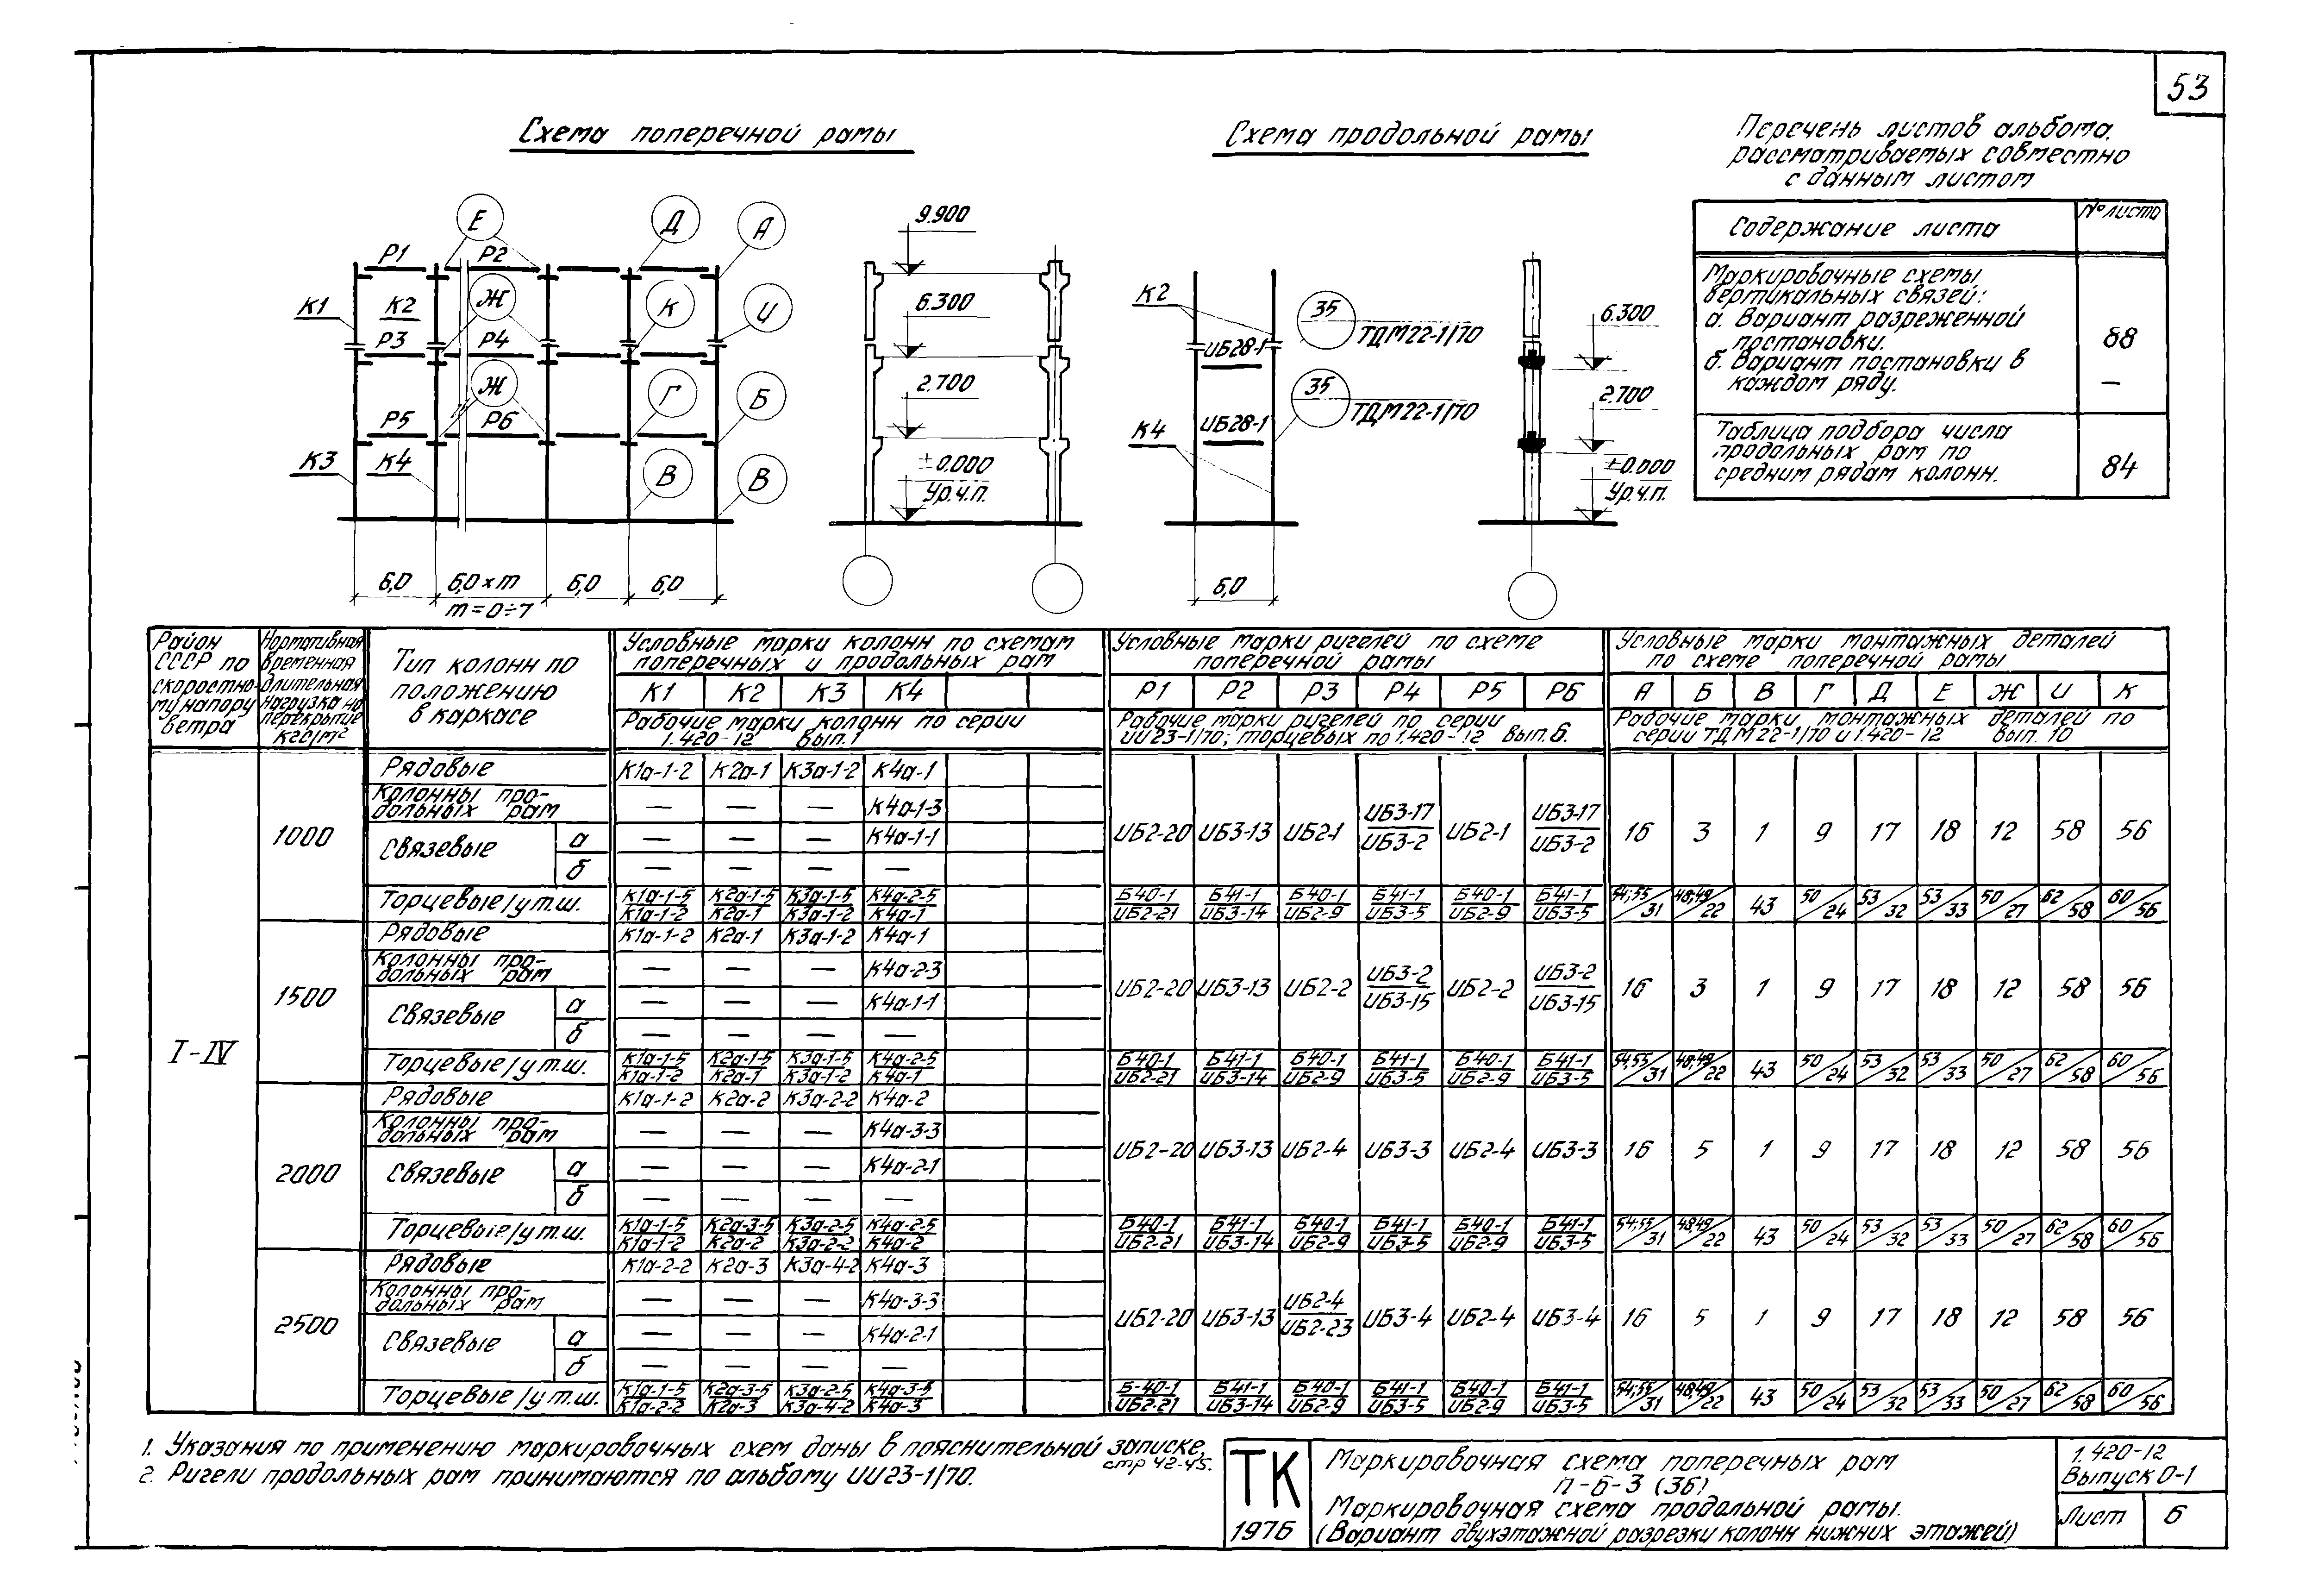 53
Схема поперечной рамы
Схема продольной рамы
Перечень листов альбома,
рассматриваемых совместно
с данным листом
Содержание листа
№ листа
Маркировочные схемы
вертикальных связей:
а. Вариант разреженной
постановки.
88
б. Вариант постановки в
каждом ряду.
—
Таблица подбора числа
продольных рам по
средним рядам колонн.
84
Е Д А
Р1 Р2
К1 К2 Ж К И
Р3 Р4
Ж Г Б
Р5 Р6
К3 К4 В В
6,0 6,0×m 6,0 6,0
m=0÷7
9.900
6.300
2.700
±0.000
Ур.ч.п.
К2
35
ТДМ22-1/70
ИБ28-1
35
ТДМ22-1/70
ИБ28-1
К4
6,0
6.300
2.700
±0.000
Ур.ч.п.
Район
СССР по
скоростно-
му напору
ветра
Нормативная
временная
длительная
нагрузка на
перекрытие
кгс/м²
Тип колонн по
положению
в каркасе
Условные марки колонн по схемам
поперечных и продольных рам
К1 К2 К3 К4
Рабочие марки колонн по серии
1.420-12 вып. 1
Условные марки ригелей по схеме
поперечной рамы
Р1 Р2 Р3 Р4 Р5 Р6
Рабочие марки ригелей по серии
ИИ23-1/70; торцевых по 1.420-12 вып. 6.
Условные марки монтажных деталей
по схеме поперечной рамы
А Б В Г Д Е Ж И К
Рабочие марки монтажных деталей по
серии ТДМ22-1/70 и 1.420-12 вып. 10
I-IV
1000
Рядовые К1а-1-2 К2а-1 К3а-1-2 К4а-1
Колонны про-
дольных рам — — — К4а-1-3
Связевые а — — — К4а-1-1
б — — — —
ИБ2-20 ИБ3-13 ИБ2-1 ИБ3-17/ИБ3-2 ИБ2-1 ИБ3-17/ИБ3-2 16 3 1 9 17 18 12 58 56
Торцевые/у т.ш. К1а-1-5/К1а-1-2 К2а-1-5/К2а-1 К3а-1-5/К3а-1-2 К4а-2-5/К4а-1 Б40-1/ИБ2-21 Б41-1/ИБ3-14 Б40-1/ИБ2-9 Б41-1/ИБ3-5 Б40-1/ИБ2-9 Б41-1/ИБ3-5 54;55/31 48;49/22 43 50/24 53/32 53/33 50/27 62/58 60/56
1500
Рядовые К1а-1-2 К2а-1 К3а-1-2 К4а-1
Колонны про-
дольных рам — — — К4а-2-3
Связевые а — — — К4а-1-1
б — — — —
ИБ2-20 ИБ3-13 ИБ2-2 ИБ3-2/ИБ3-15 ИБ2-2 ИБ3-2/ИБ3-15 16 3 1 9 17 18 12 58 56
Торцевые/у т.ш. К1а-1-5/К1а-1-2 К2а-1-5/К2а-1 К3а-1-5/К3а-1-2 К4а-2-5/К4а-1 Б40-1/ИБ2-21 Б41-1/ИБ3-14 Б40-1/ИБ2-9 Б41-1/ИБ3-5 Б40-1/ИБ2-9 Б41-1/ИБ3-5 54;55/31 48;49/22 43 50/24 53/32 53/33 50/27 62/58 60/56
2000
Рядовые К1а-1-2 К2а-2 К3а-2-2 К4а-2
Колонны про-
дольных рам — — — К4а-3-3
Связевые а — — — К4а-2-1
б — — — —
ИБ2-20 ИБ3-13 ИБ2-4 ИБ3-3 ИБ2-4 ИБ3-3 16 5 1 9 17 18 12 58 56
Торцевые/у т.ш. К1а-1-5/К1а-1-2 К2а-3-5/К2а-2 К3а-2-5/К3а-2-2 К4а-2-5/К4а-2 Б40-1/ИБ2-21 Б41-1/ИБ3-14 Б40-1/ИБ2-9 Б41-1/ИБ3-5 Б40-1/ИБ2-9 Б41-1/ИБ3-5 54;55/31 48;49/22 43 50/24 53/32 53/33 50/27 62/58 60/56
2500
Рядовые К1а-2-2 К2а-3 К3а-4-2 К4а-3
Колонны про-
дольных рам — — — К4а-3-3
Связевые а — — — К4а-2-1
б — — — —
ИБ2-20 ИБ3-13 ИБ2-4/ИБ2-23 ИБ3-4 ИБ2-4 ИБ3-4 16 5 1 9 17 18 12 58 56
Торцевые/у т.ш. К1а-1-5/К1а-2-2 К2а-3-5/К2а-3 К3а-2-5/К3а-4-2 К4а-3-5/К4а-3 Б-40-1/ИБ2-21 Б41-1/ИБ3-14 Б40-1/ИБ2-9 Б41-1/ИБ3-5 Б40-1/ИБ2-9 Б41-1/ИБ3-5 54;55/31 48;49/22 43 50/24 53/32 53/33 50/27 62/58 60/56
1. Указания по применению маркировочных схем даны в пояснительной записке, стр 42-45.
2. Ригели продольных рам принимаются по альбому ИИ23-1/70.
ТК
1976
Маркировочная схема поперечных рам
П-6-3 (36)
Маркировочная схема продольной рамы.
(Вариант двухэтажной разрезки колонн нижних этажей)
1.420-12
Выпуск 0-1
Лист 6